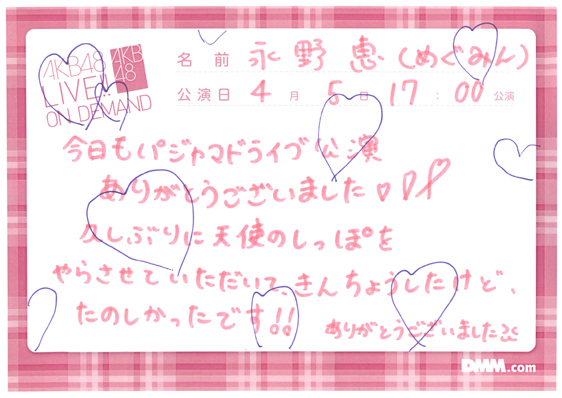 AKB48
LIVE!!
ON DEMAND
AKB
48
名前 永野恵(めぐみん)
公演日 4月5日 17:00公演
今日もパジャマドライブ公演
ありがとうございました♡!!
久しぶりに天使のしっぽを
やらさせていただいて、きんちょうしたけど、
たのしかったです!!
ありがとうございました
DMM.com